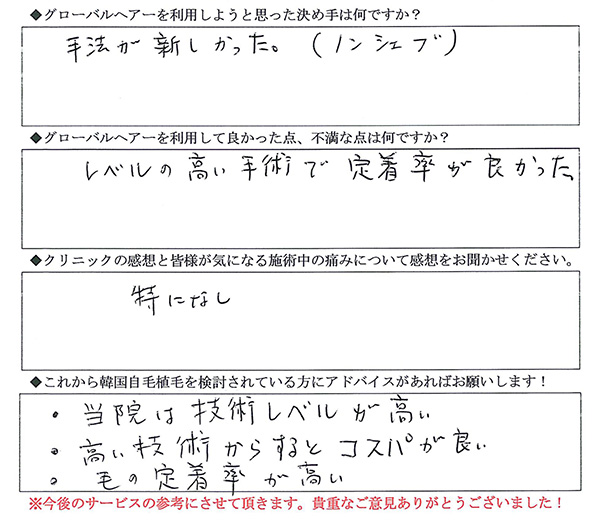 ◆グローバルヘアーを利用しようと思った決め手は何ですか？
手法が新しかった。(ノンシェブ)
◆グローバルヘアーを利用して良かった点、不満な点は何ですか？
レベルの高い手術で定着率が良かった
◆クリニックの感想と皆様が気になる施術中の痛みについて感想をお聞かせください。
特になし
◆これから韓国自毛植毛を検討されている方にアドバイスがあればお願いします！
・当院は技術レベルが高い
・高い技術からするとコスパが良い
・毛の定着率が高い
※今後のサービスの参考にさせて頂きます。貴重なご意見ありがとうございました！